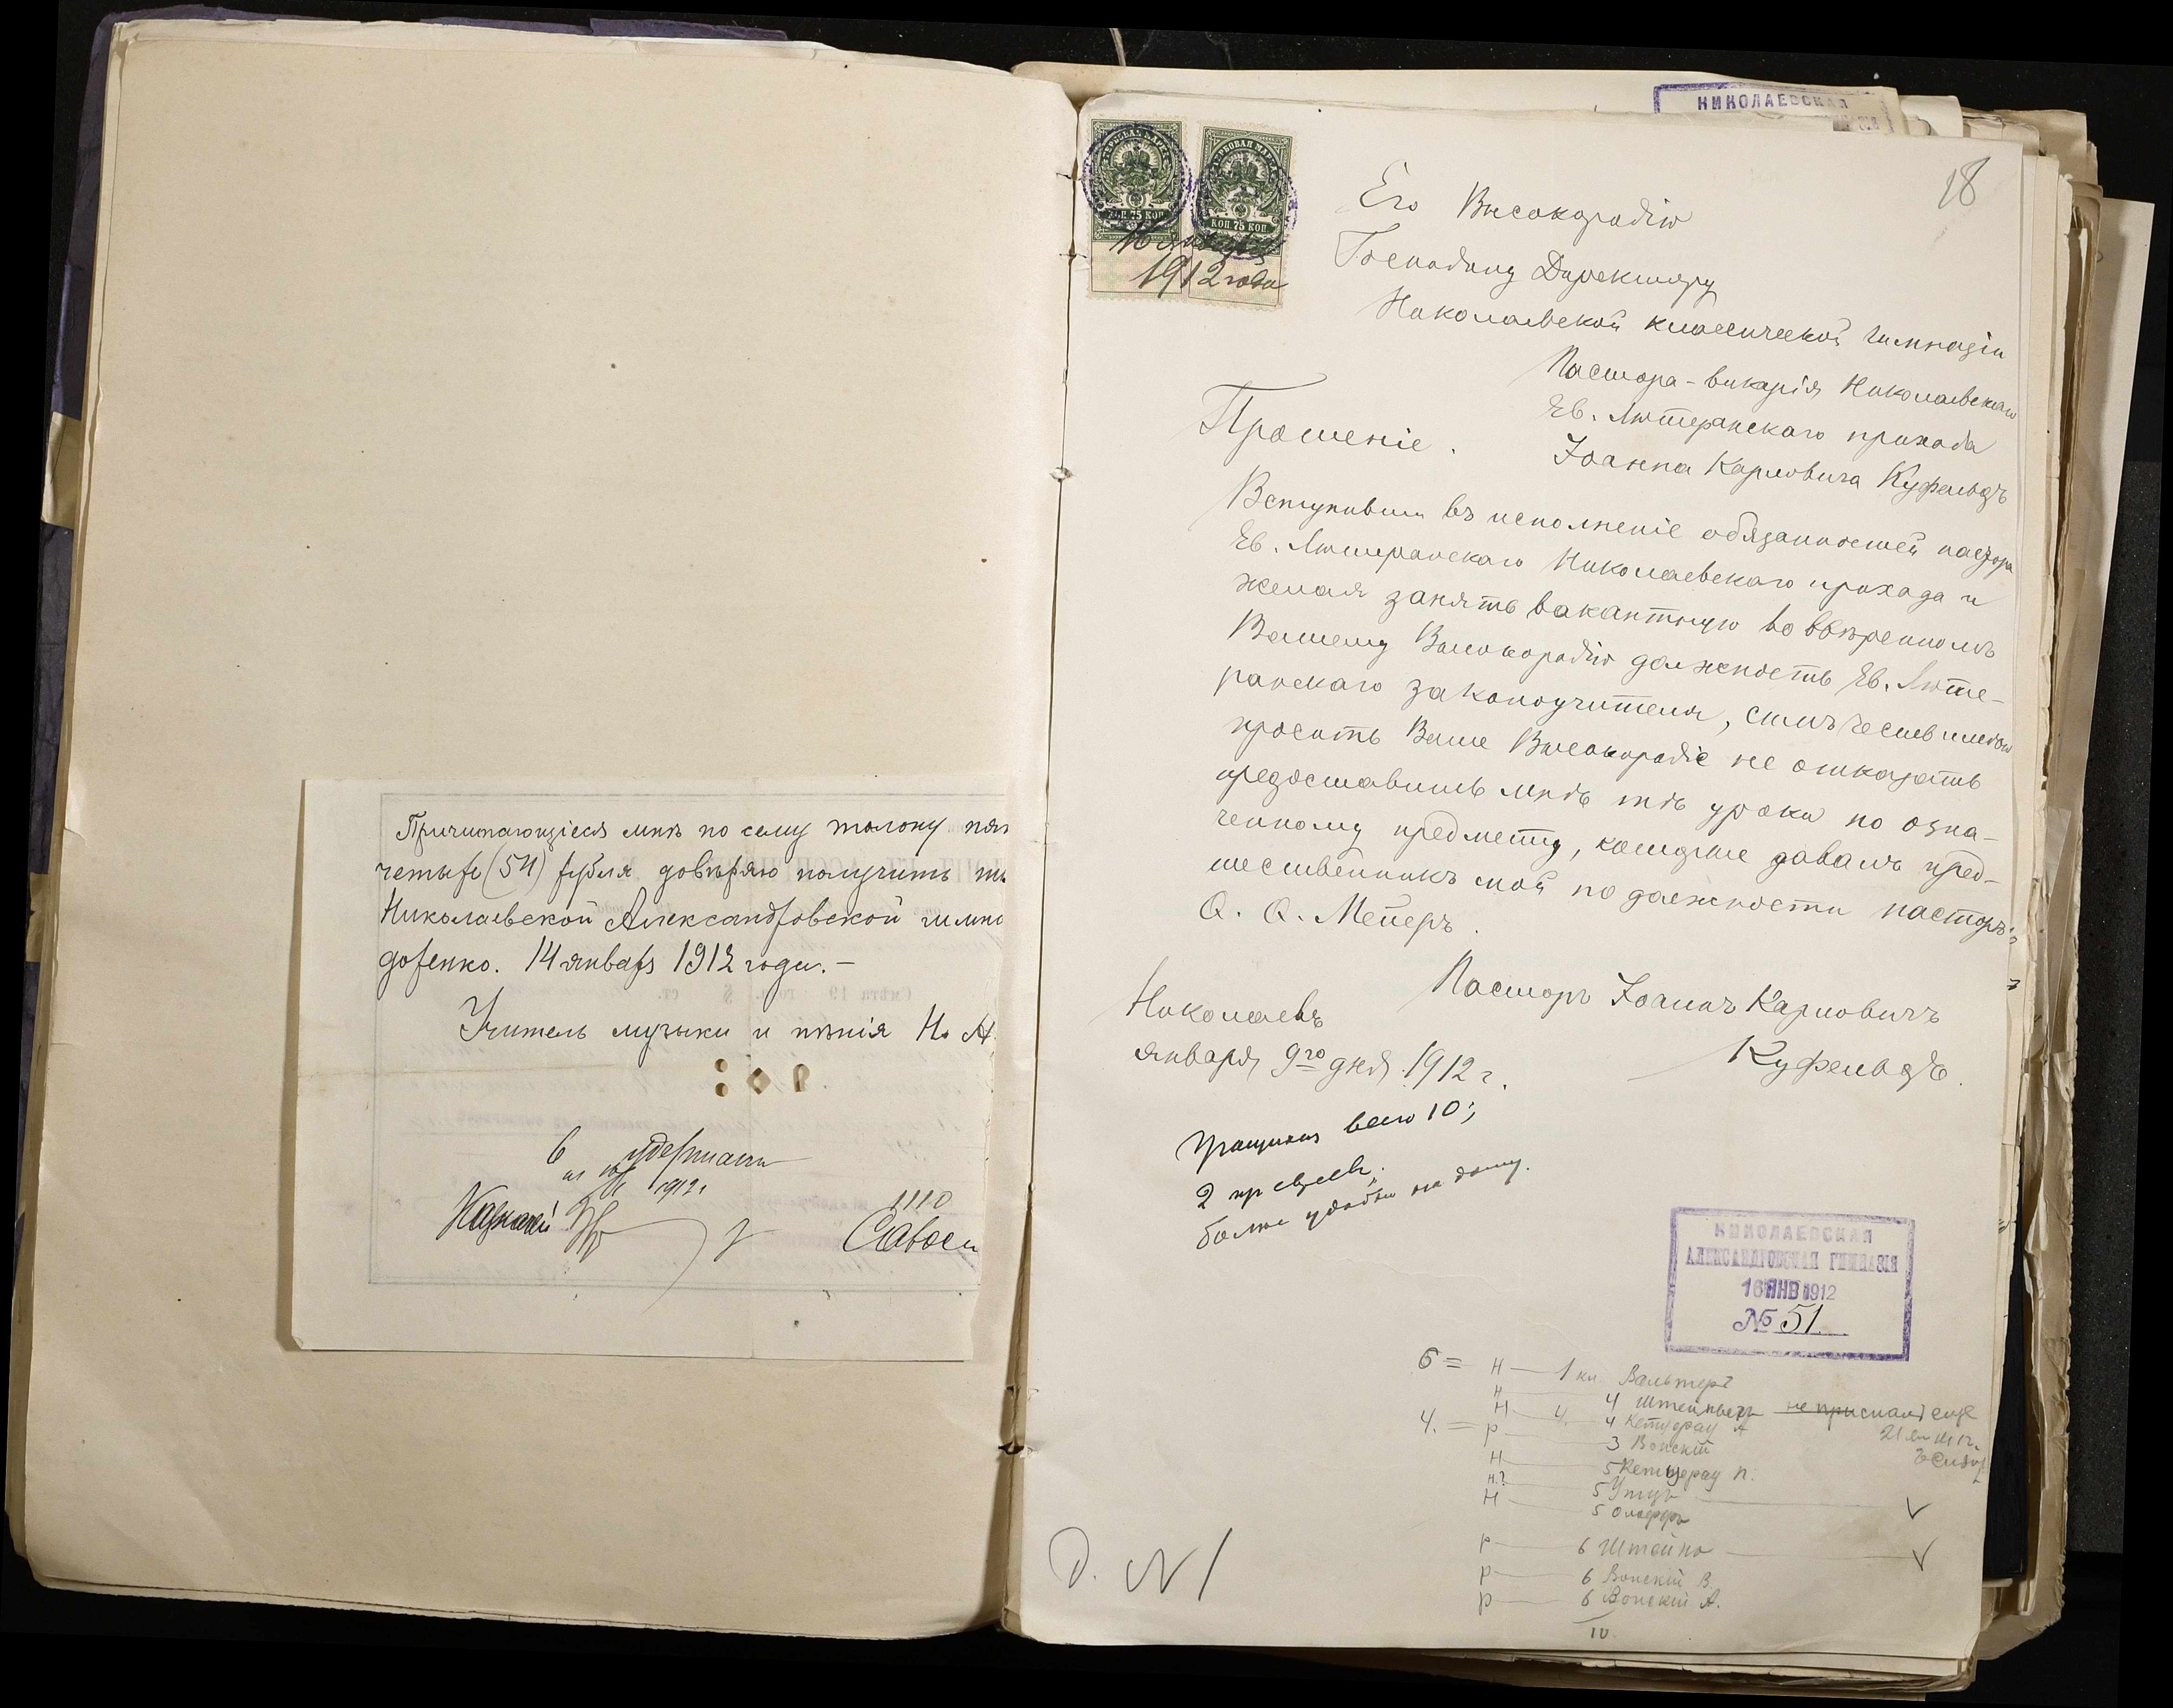 Причитающіеся мнѣ по сему талону
четыре (54) рубля довѣряю получить
Николаевской Александровской
доренко. 14 января 1912 года.-
Учитель музыки и пѣнія Н. А.
1912 г.
1110
НИКОЛАЕВСКАЯ
18
КОП. 75 КОП.
ГЕРБОВАЯ МАРКА
КОП. 75 КОП.
16 января
1912 года
Его Высокородію
Господину Директору
Николаевской классической гимназіи
Пастора-викарія Николаевскаго
Ев. Лютеранскаго прихода
Іоанна Карловича Куфельдъ
Прошеніе.
Вступивши въ исполненіе обязанностей пастора
Ев. Лютеранскаго Николаевскаго прихода и
желая занять вакантную во ввѣренномъ
Вашему Высокородію должность Ев. Люте-
ранскаго законоучителя, симъ честь имѣю
просить Ваше Высокородіе не отказать
предоставить мнѣ тѣ уроки по озна-
ченному предмету, которые давалъ пред-
шественникъ мой по должности пасторъ
О. О. Мейеръ.
Пасторъ Іоаннъ Карловичъ
Куфельдъ.
Николаевъ
января 9го дня 1912 г.
Учащихся всего 10;
2 пр
более удобны на дому.
НИКОЛАЕВСКАЯ
АЛЕКСАНДРОВСКАЯ ГИМНАЗІЯ
16 ЯНВ 1912
№ 51
6 = Н — 1 кл. Вальтеръ
Н 4
Н 4 Кетщерау А
4. = р 3 Вонскій
Н 5 Кетщерау П.
Н.? 5
Н 5
р 6 Штейнъ
р 6 Вонскій В.
р 6 Вонскій А.
IV
Д. N 1